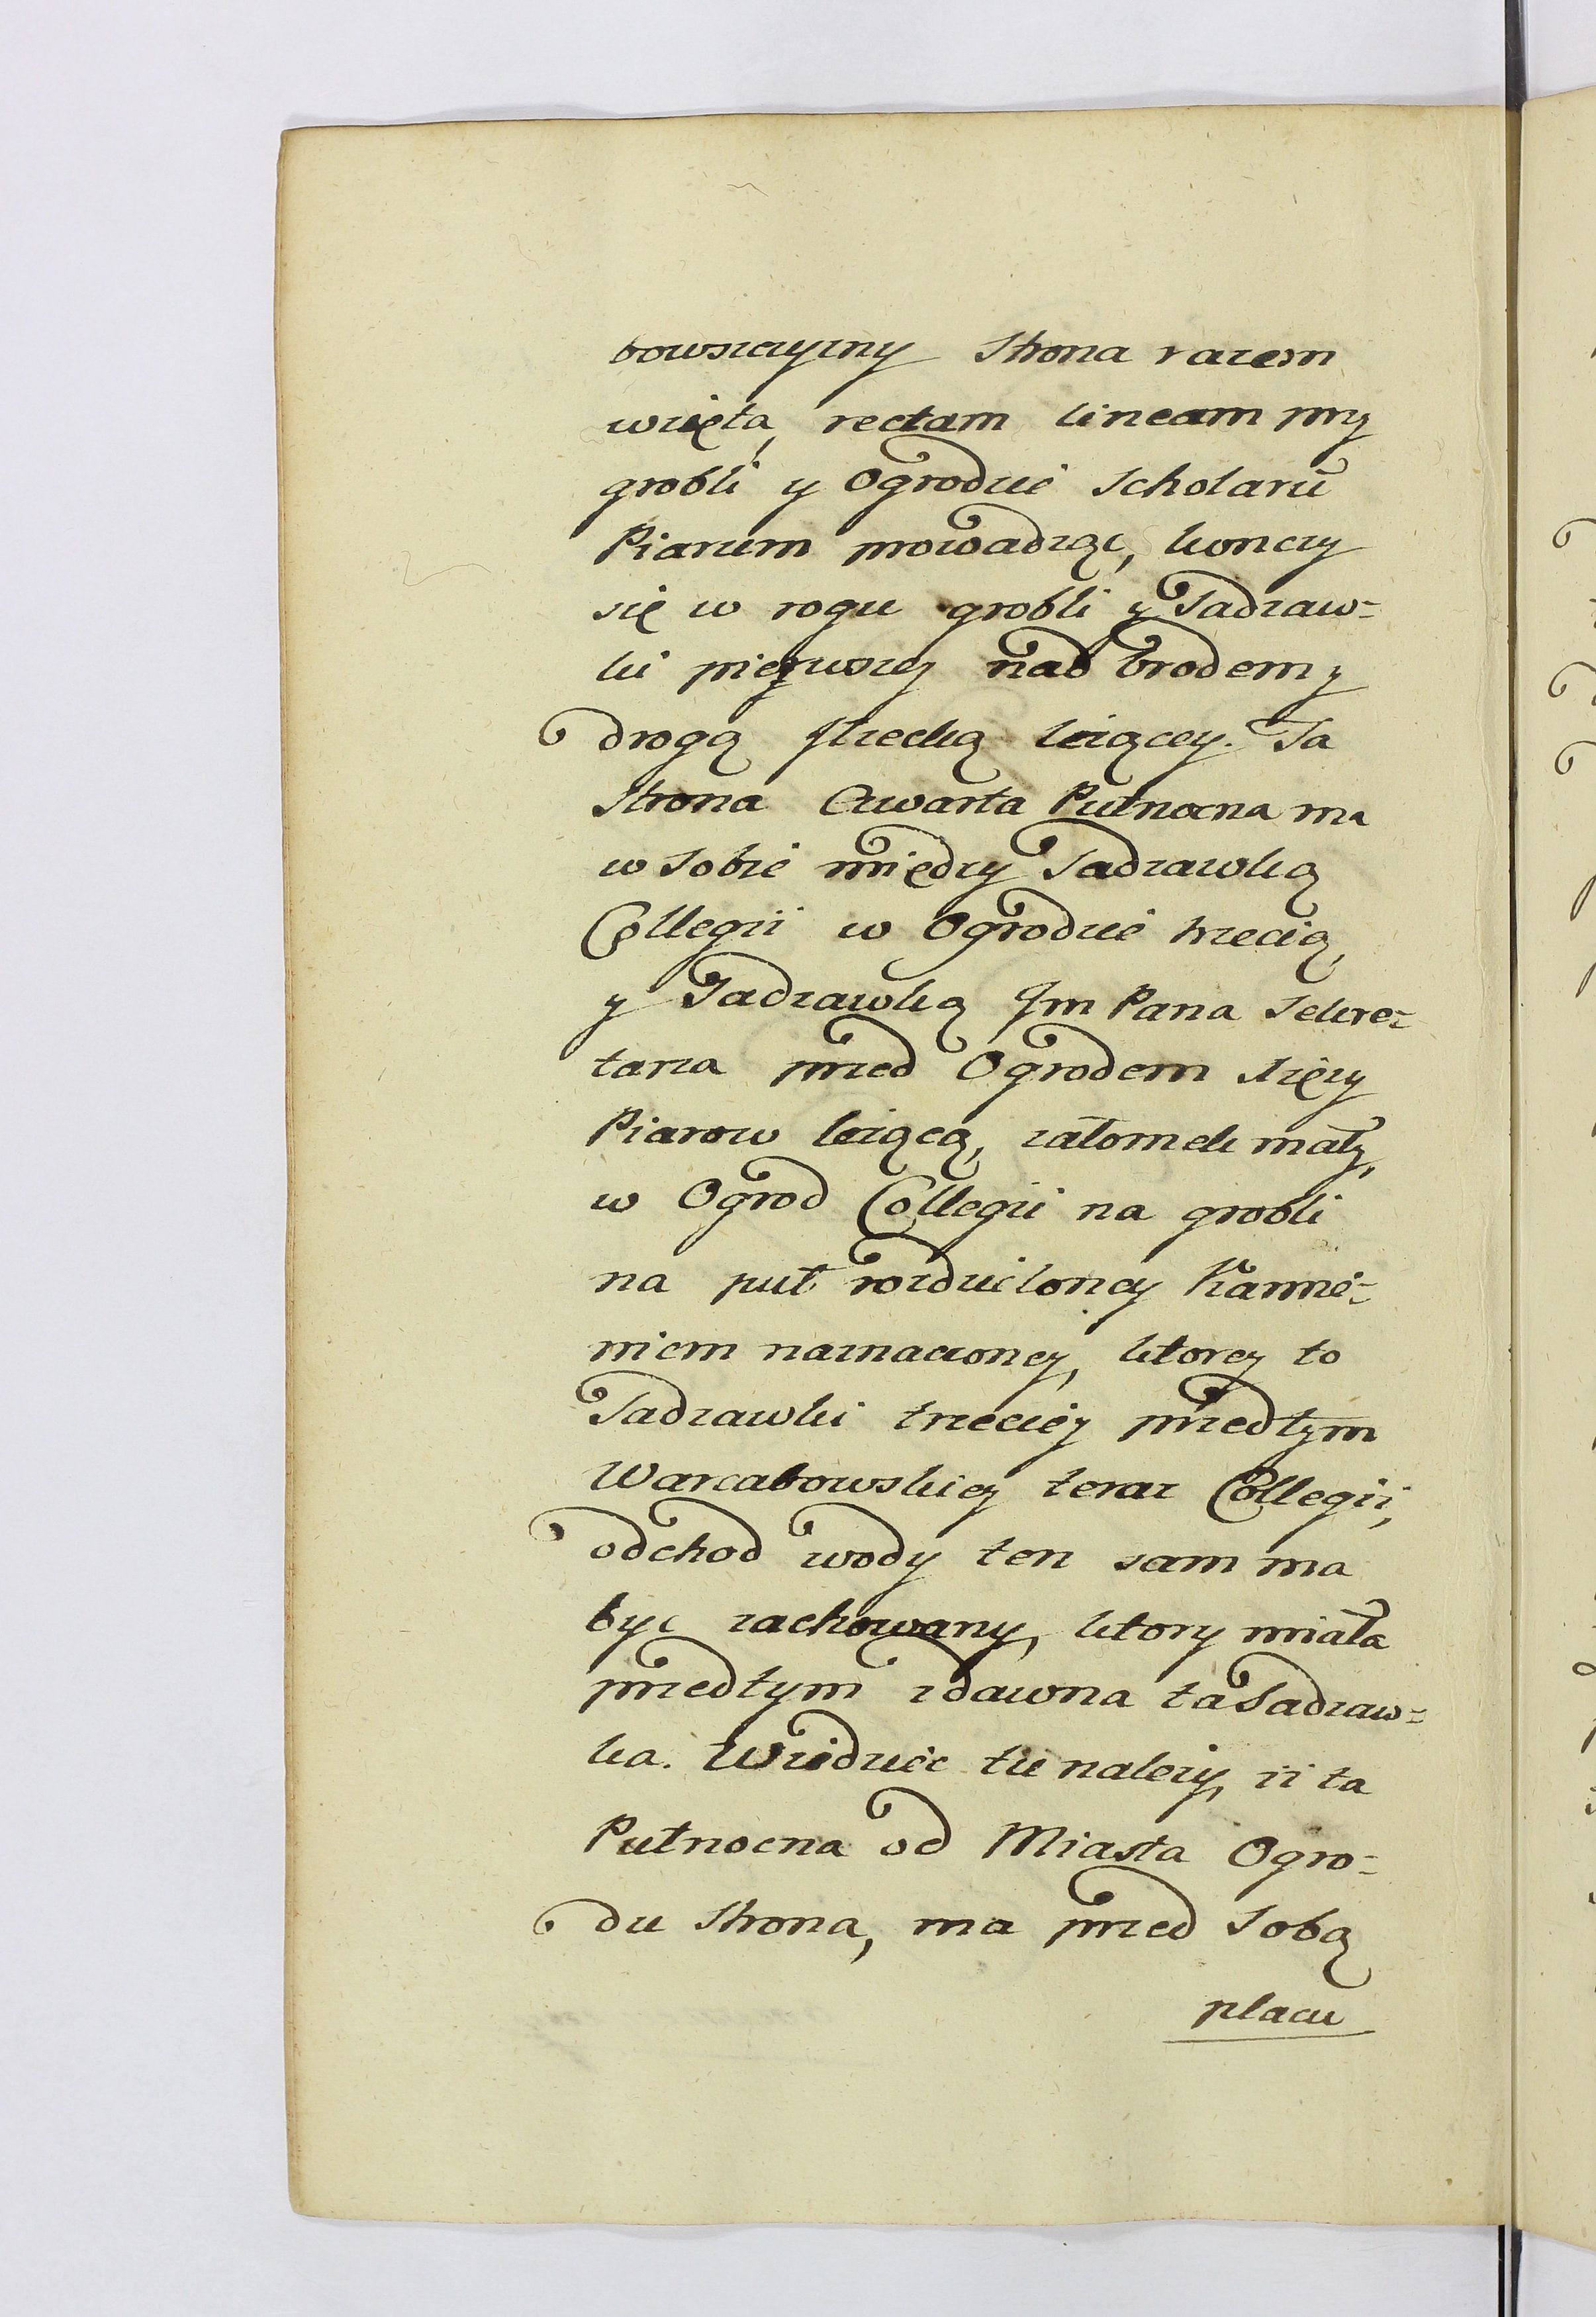 bowszczyzny Strona razem
wzięta, rectam lineam przy
grobli y Ogrodzie Scholarū
Piarum prowadząc, konczy
się w rogu grobli y Sadzaw=
ki pierwszey nad brodem y
drogą leżącey. Ta
Strona Czwarta Pułnocna ma
w Sobie między Sadzawką
Collegii w Ogrodzie trzecią,
y Sadzawką Jm Pana Sekre=
tarza przed Ogrodem Xięży
Piarow leżącą, załomek mały,
w Ogrod Collegii na grobli
na puł rozdzieloney Kamie=
niem naznaczoney, ktorey to
Sadzawki trzeciey przedtym
Warcabowskiey teraz Collegii,
odchod wody ten sam ma
byc zachowany, ktory miała
przedtym zdawna ta Sadzaw=
ka. Wiedziec tu należy, iż ta
Pułnocna od Miasta Ogro=
du Strona, ma przed Sobą
placu